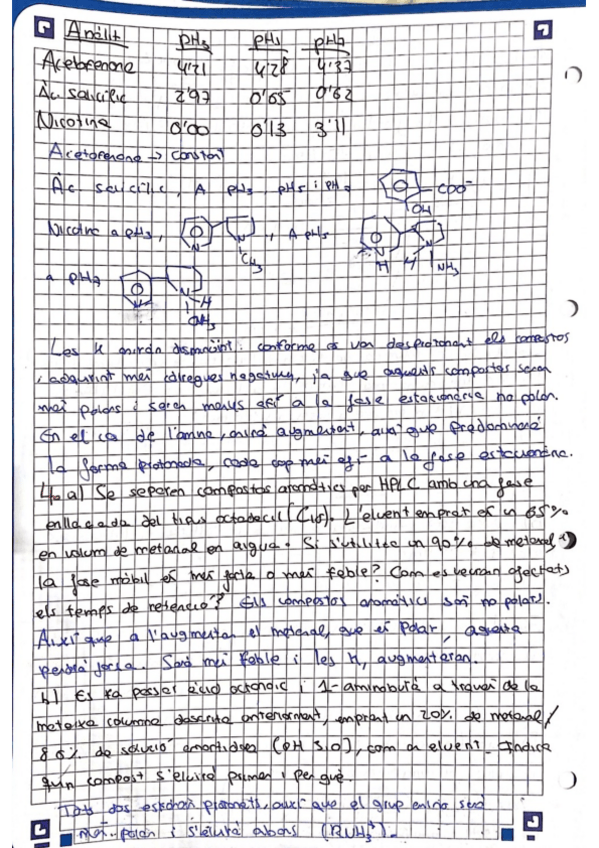 Anàlit pH3 pH5 pH7
Acetofenona 4'21 4'28 4'37
Àc salicílic 2'97 0'65 0'62
Nicotina 0'00 0'13 3'11
Acetofenona → constant
Àc salicílic, A pH3, pH5 i pH7
COO⁻
OH
Nicotina a pH3, N N CH3, A pH5
N H N H NH3
a pH7 N N H CH3
Les K aniran disminuint conforme es van desprotonant els compostos
i adquirint més càrregues negatives, ja que aquests compostos seran
més polars i seran menys afí a la fase estacionària no polar.
En el cas de l'amina, anirà augmentant, així que predominarà
la forma protonada, cada cop més afí a la fase estacionària.
4. a) Se separen compostos aromàtics per HPLC amb una fase
enllaçada del tipus octadecil (C18). L'eluent emprat és un 65%
en volum de metanol en aigua. Si s'utilitza un 90% de metanol
la fase mòbil és més forta o més feble? Com es veuran afectats
els temps de retenció? Els compostos aromàtics són no polars.
Així que a l'augmentar el metanol, que és polar, aquesta
perdrà força. Serà més feble i les K, augmentaran.
b) Es fa passar àcid octanoic i 1-aminobutà a través de la
mateixa columna descrita anteriorment, emprant un 20% de metanol/
80% de solució amortidora (pH 3,0), com a eluent. Indica
quin compost s'eluirà primer i per què.
Tots dos estaran protonats, així que el grup amina serà
més polar i s'eluirà abans (RNH3⁺).